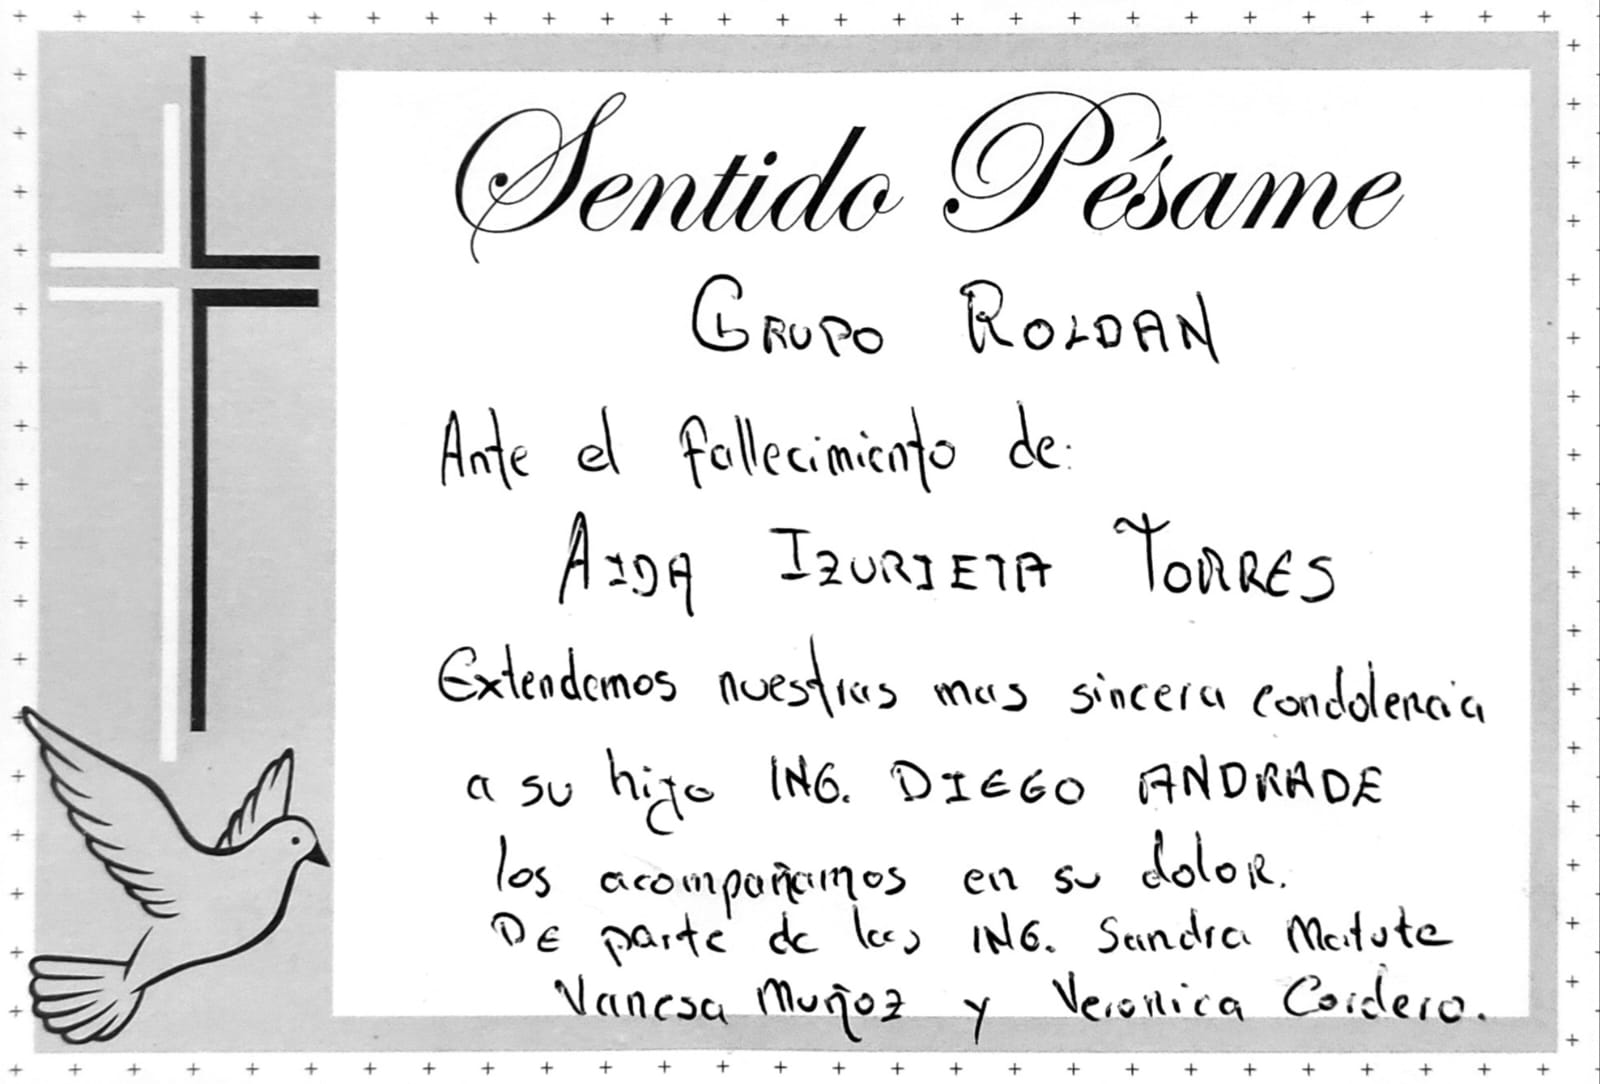 Sentido Pésame
GRUPO ROLDAN
Ante el fallecimiento de:
AIDA IZURIETA TORRES
Extendemos nuestras mas sincera condolencia
a su hijo ING. DIEGO ANDRADE
los acompañamos en su dolor.
DE parte de las ING. Sandra Matute
Vanesa Muñoz y Veronica Cordero.